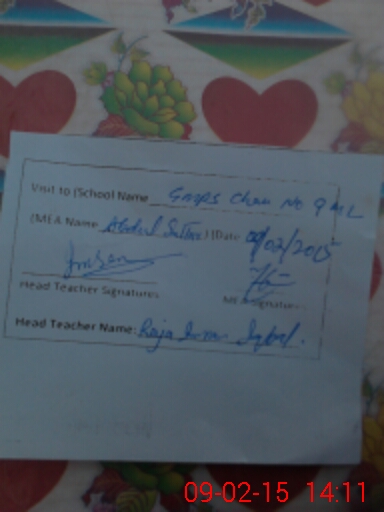 Visit to (School Name GMPS Chak No 9 ML
(MEA Name Abdul Sattar) (Date 09/02/2015
Head Teacher Signatures
MEA Signature
Head Teacher Name: Raja Imran Iqbal.
09-02-15 14:11